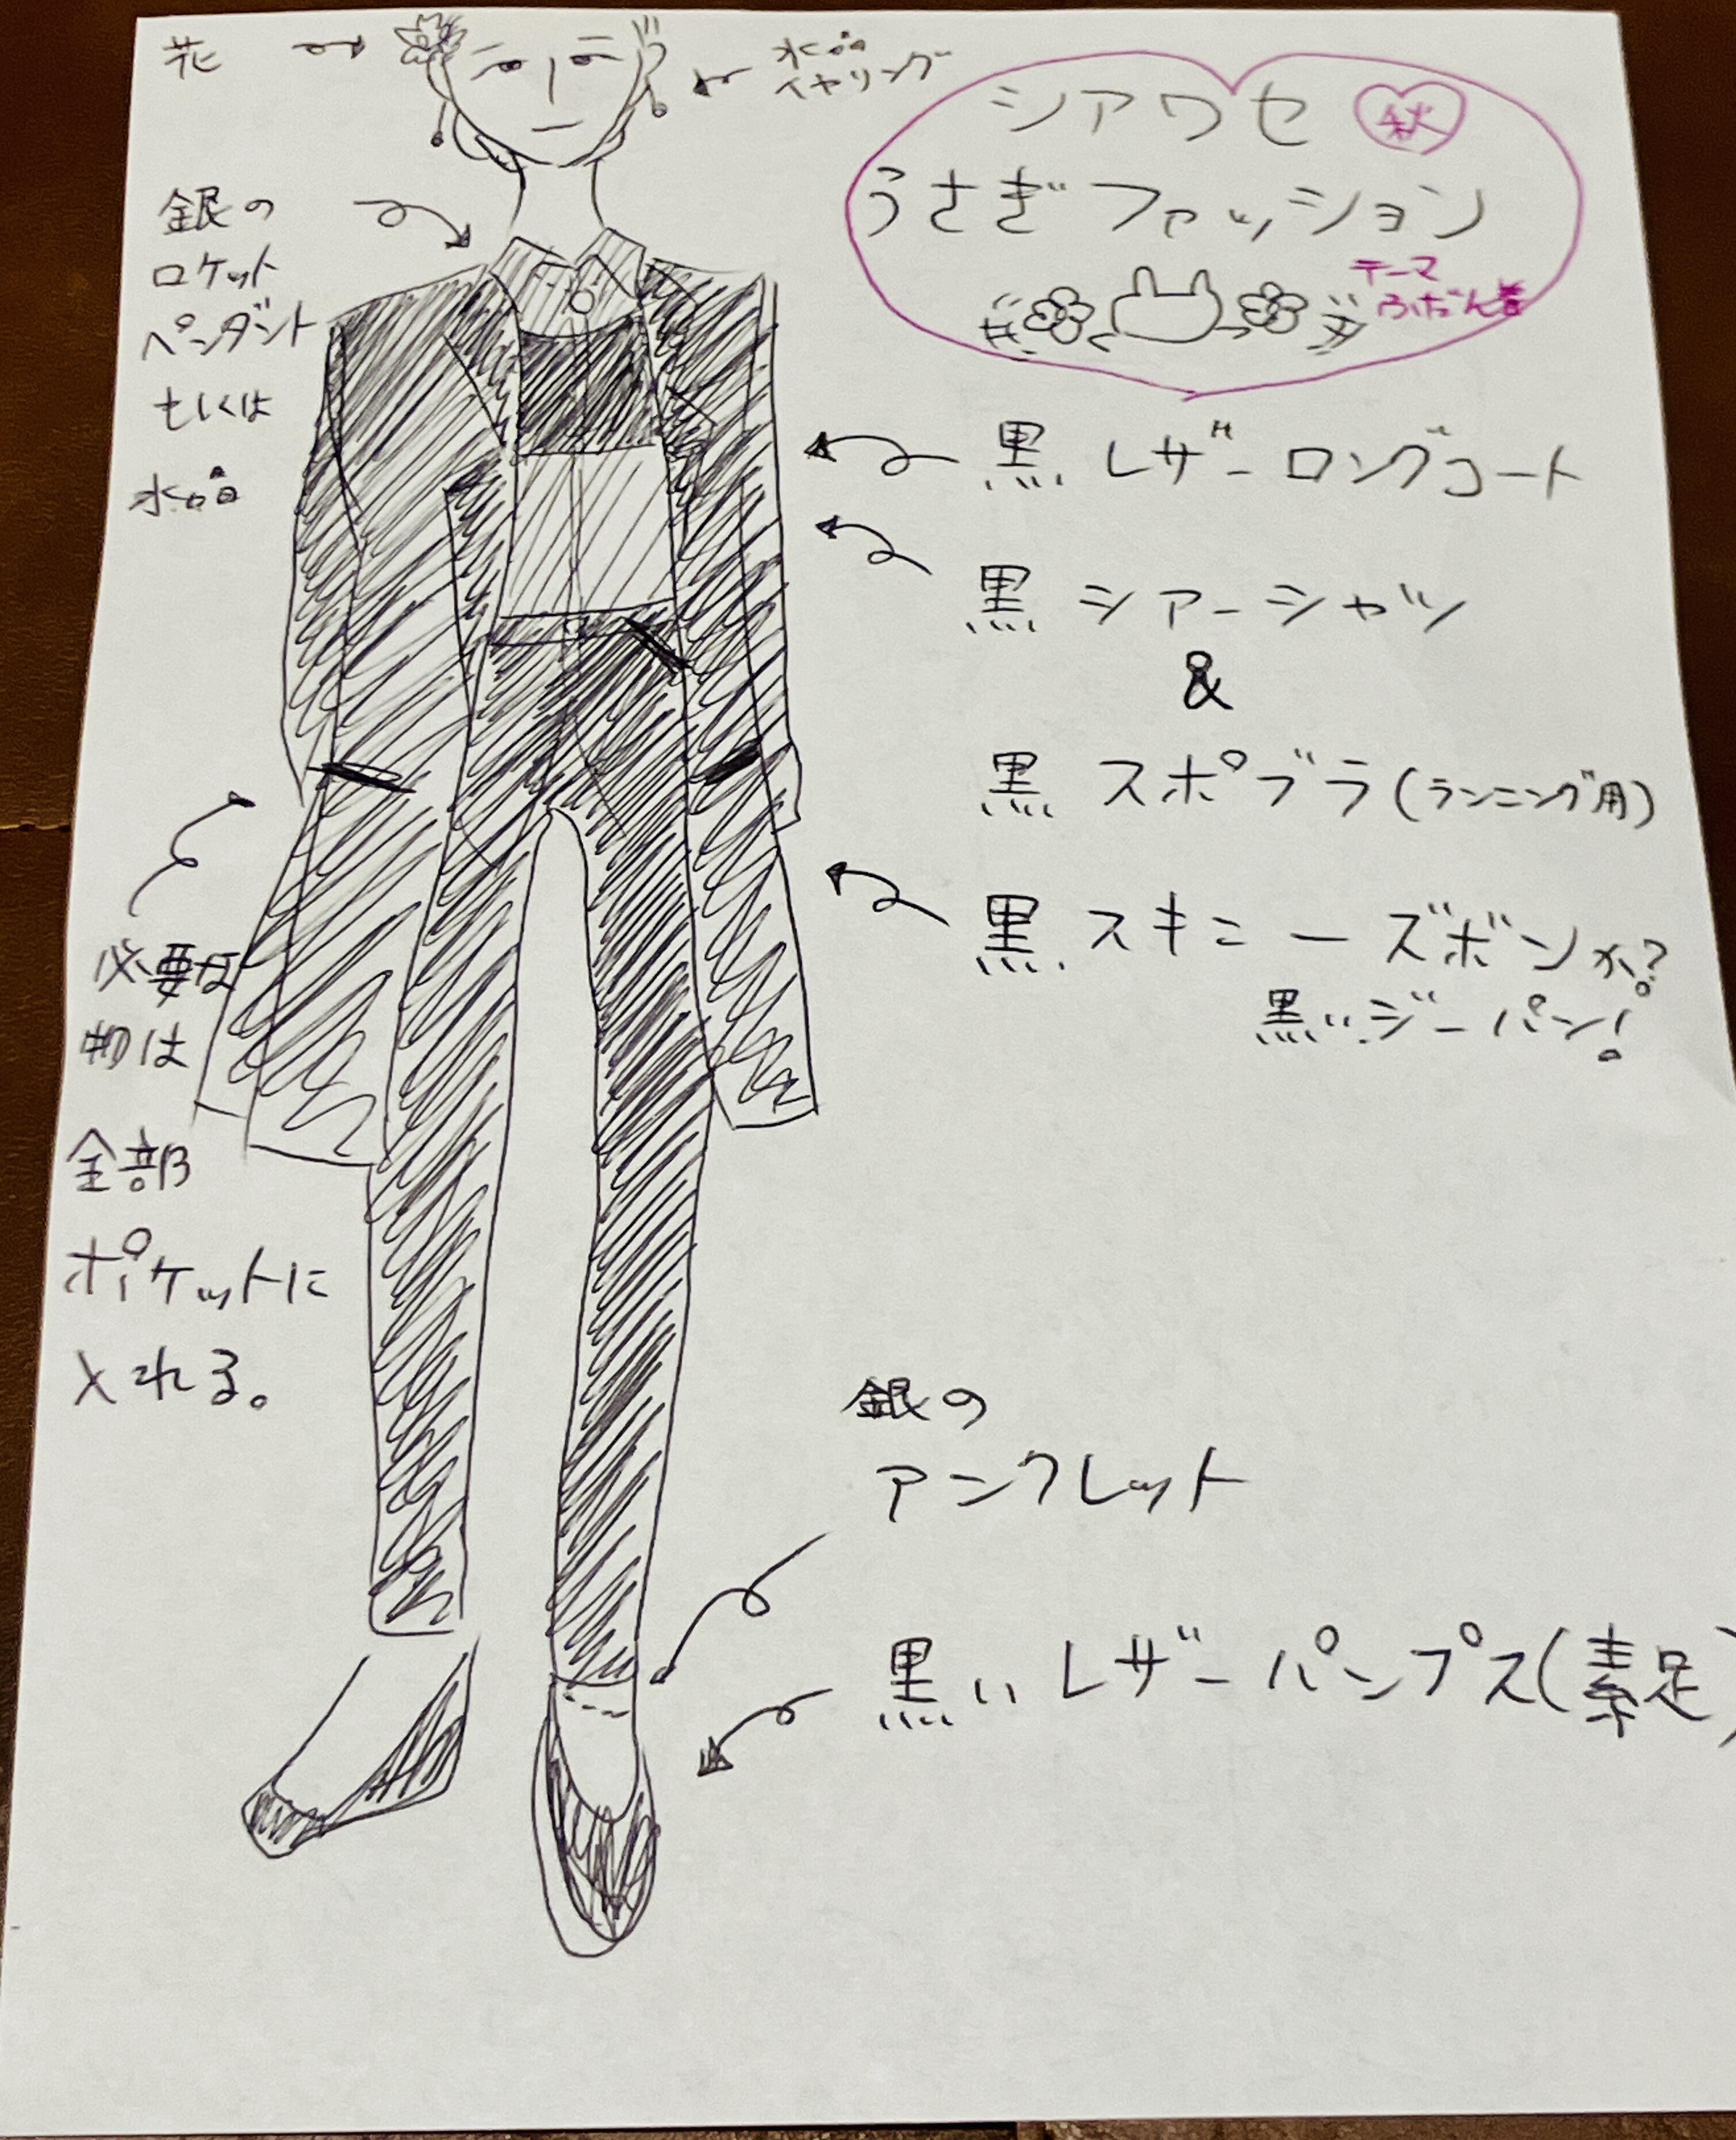 花
水晶
イヤリング
シアワセ 秋
うさぎファッション
テーマ
ふだん着
銀の
ロケット
ペンダント
もしくは
水晶
黒レザーロングコート
黒シアーシャツ
&
黒スポブラ(ランニング用)
黒スキニーズボンか?
黒いジーパン!
必要な
物は
全部
ポケットに
入れる。
銀の
アンクレット
黒いレザーパンプス(素足)